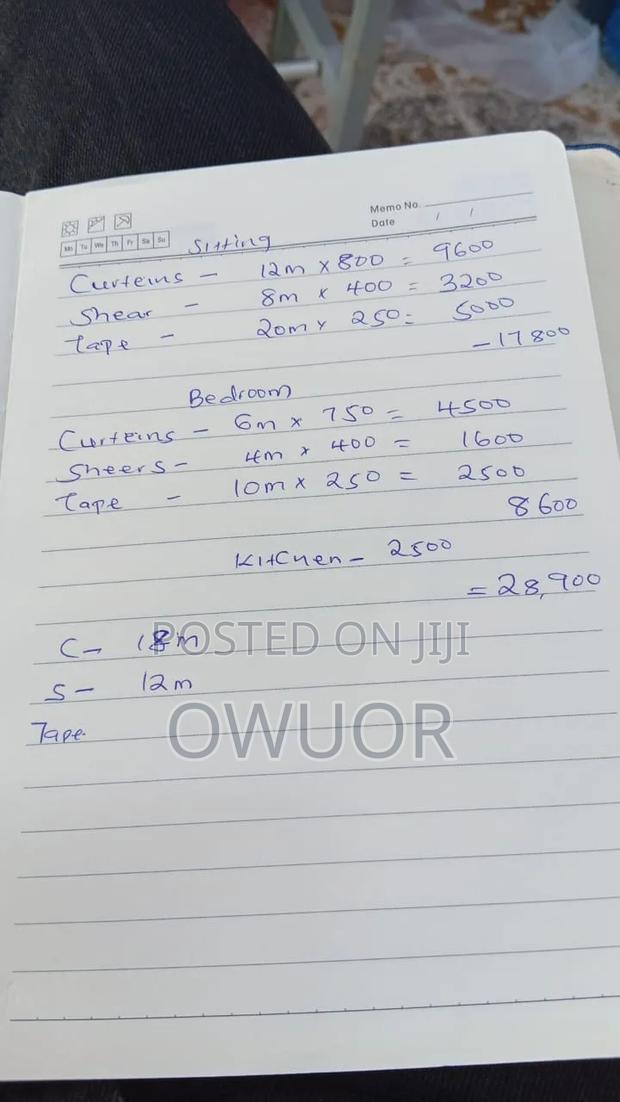 Memo No.
Date / /
Mo Tu We Th Fr Sa Su
Sitting
Curteins - 12m x 800 = 9600
Shear - 8m x 400 = 3200
Tape - 20m x 250 = 5000
- 17800
Bedroom
Curteins - 6m x 750 = 4500
Sheers - 4m x 400 = 1600
Tape - 10m x 250 = 2500
8600
Kitchen - 2500
= 28,900
C - 18m
S - 12m
Tape
POSTED ON JIJI
OWUOR